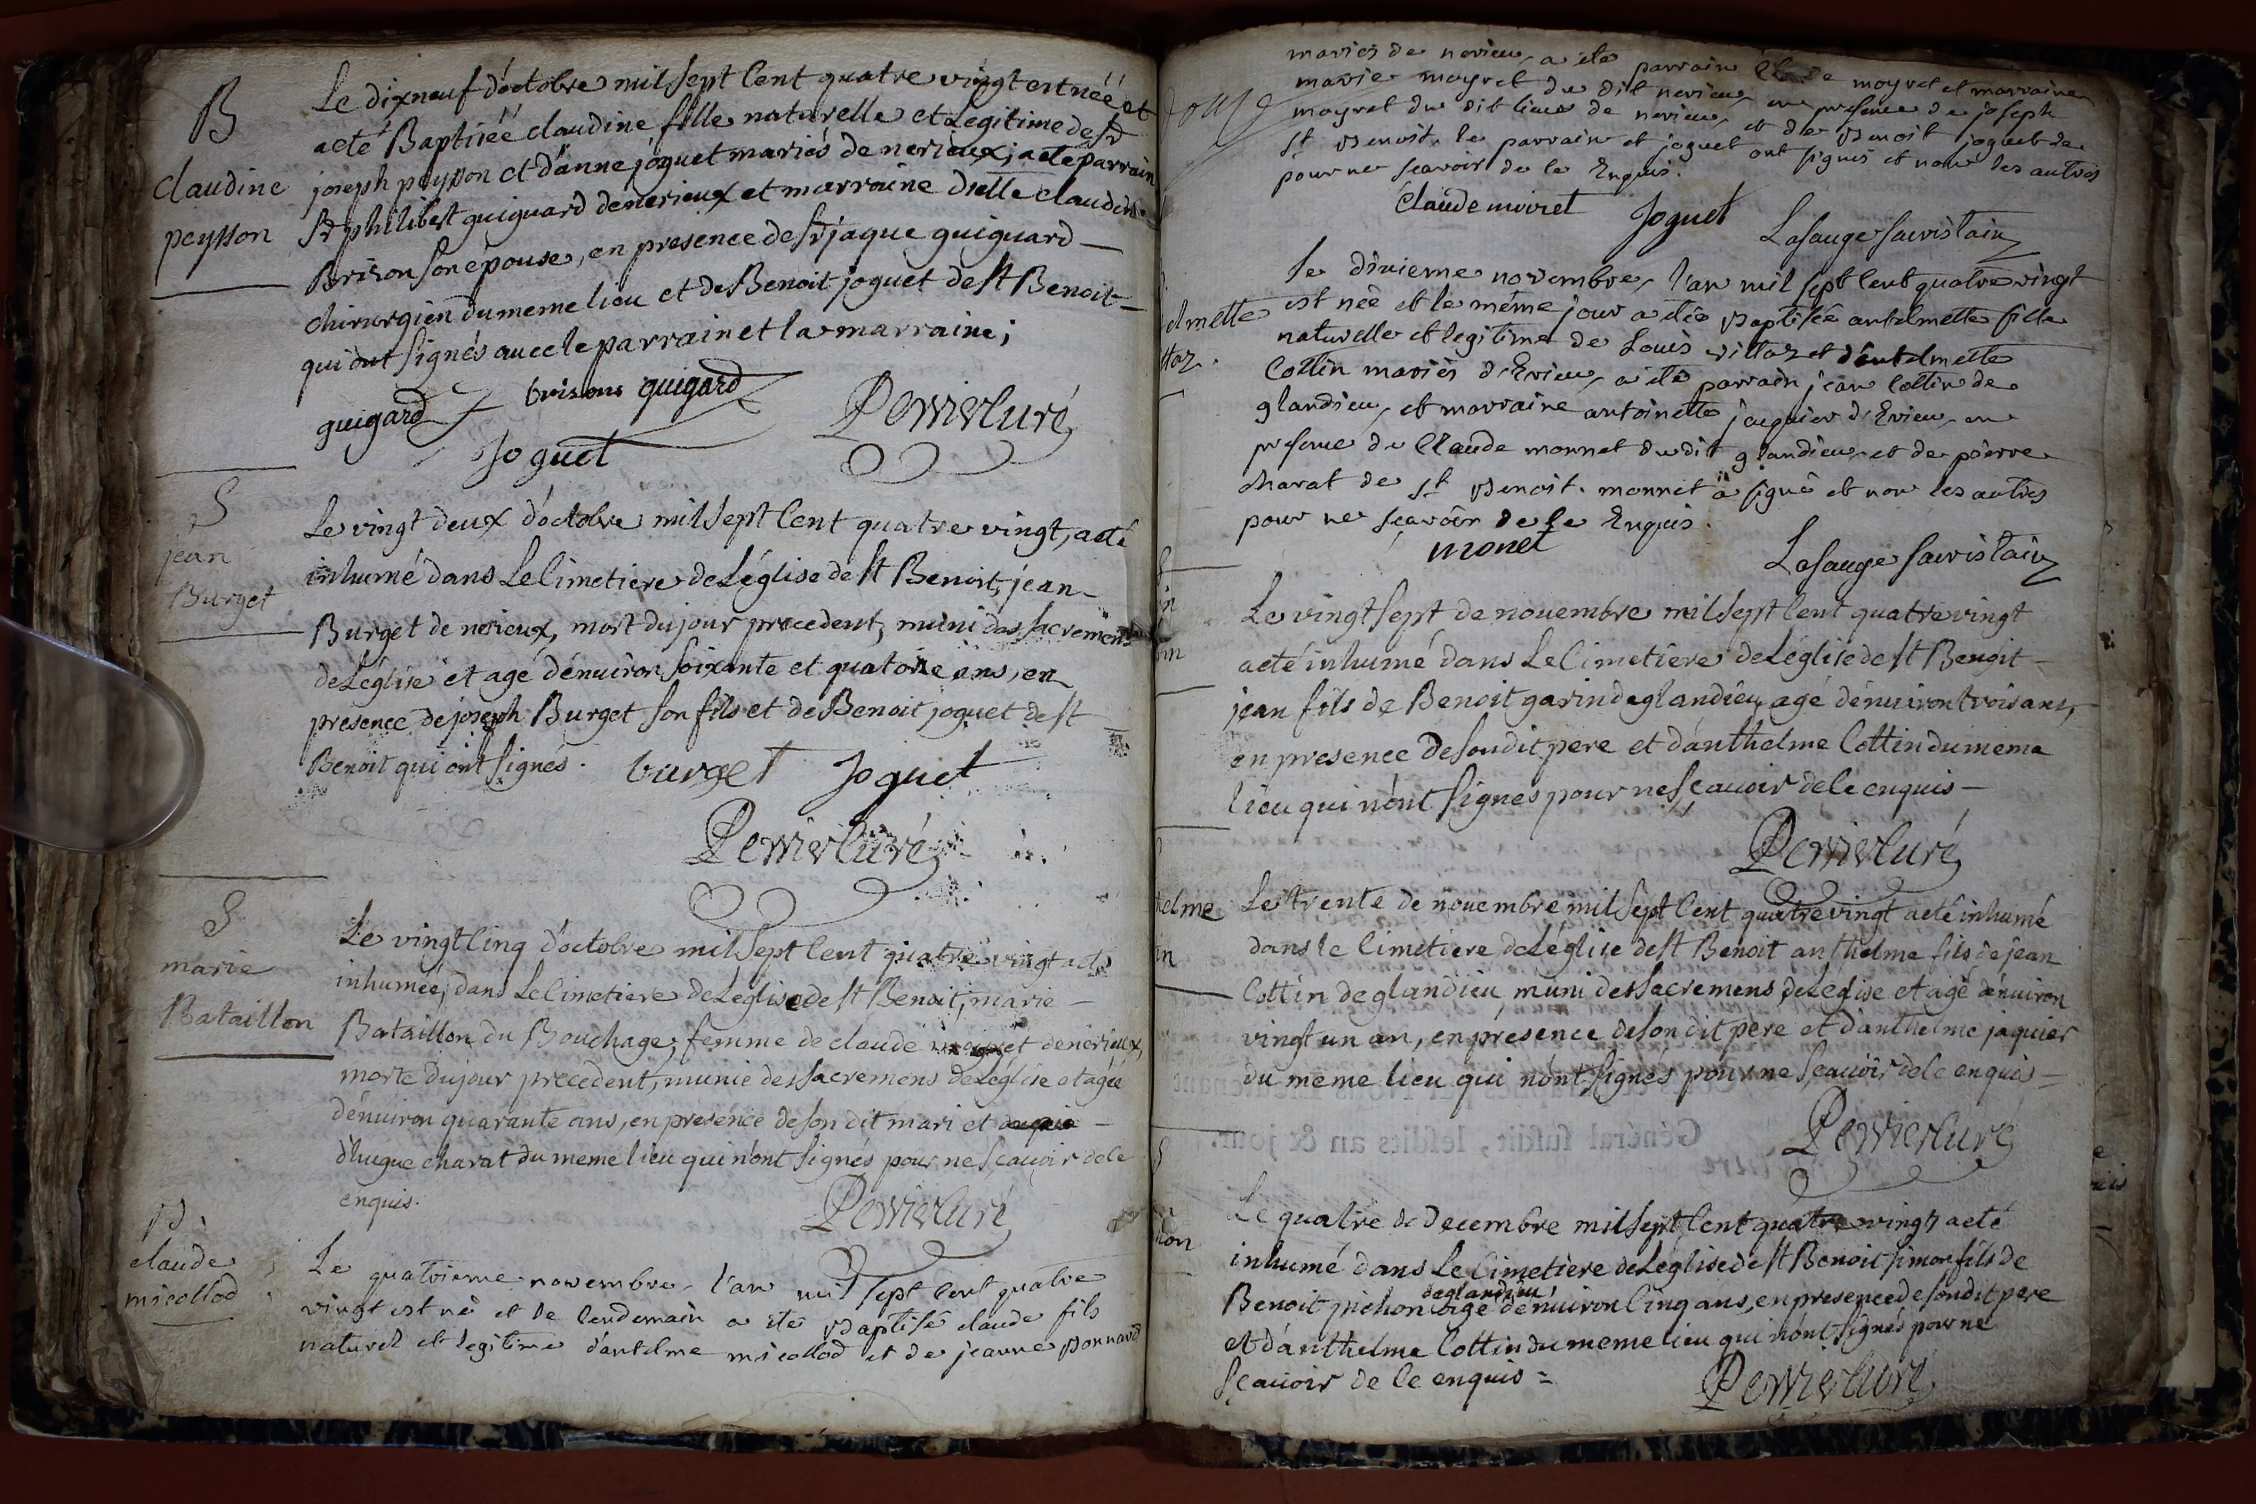 B
claudine
peysson
Le dixneuf d'octobre mil sept Cent quatre vingt est néé et
a eté Baptiséé claudine fille naturelle et Legitime de Sr
joseph peysson et d'anne joguet mariés de nerieux; a eté parrain
Sr philibert guiguard de nerieux et marraine dlle claudine
Brison son epouse, en presence de Sr jaque guiguard
chirurgien du meme lieu et de Benoit joguet de St Benoit
qui ont signés avec le parrain et la marraine;
guigard brisons guigard
Joguet Perrier Curé
S
jean
Burget
Le vingt deux d'octobre mil sept Cent quatre vingt, a eté
inhumé dans Le Cimetiere de L'église de St Benoit, jean
Burget de nerieux, mort du jour precedent, muni des sacremens
de L'église et agé d'enuiron soixante et quatorze ans, en
presence de joseph Burget son fils et de Benoit joguet de St
Benoit qui ont signés. burget Joguet
Perrier Curé
S
marie
Bataillon
Le vingt Cinq d'octobre mil sept Cent quatre vingt a eté
inhumée, dans Le Cimetiere de L'eglise de St Benoit, marie
Bataillon du Bouchage, femme de claude moiret de nerieux,
morte du jour precedent, munie des sacremens de L'église et agée
d'enuiron quarante ans, en presence de son dit mari et
d'hugue charat du meme lieu qui n'ont signés pour ne sçauoir de ce
enquis.
Perrier Curé
B.
claude
micollod
Le quatrieme novembre l'an mil sept Cent quatre
vingt est né et le lendemain a eté Baptisé claude fils
naturel et legitime d'antelme micollod et de jeanne Bonnard
mariés de nerieu, a ete parrain Claude moyret et marraine
marie moyret du dit nerieu en presence de joseph
moyret du dit lieu de nerieu, et de Benoit joguet de
St Benoit, le parrain et joguet ont signés et non les autres
pour ne scavoir de ce Enquis.
Claude moiret Joguet Lasauge sacristain
elmette
ttaz.
Le dixieme novembre, l'an mil sept Cent quatre vingt
est néé et le même jour a etée Baptisée antelmette fille
naturelle et legitime de Louis vittaz et d'antelmette
Cottin mariés d'Evieu, a eté parrain jean Cottin de
glandieu, et marraine antoinette jaquier d'Evieu, en
presence de Claude monnet du dit glandieu et de pierre
charat de St Benoit. monnet a signé et non les autres
pour ne sçavoir de ce Enquis.
monet Lasauge sacristain
S
in
Le vingt sept de nouembre mil sept Cent quatre vingt
a eté inhumé dans Le Cimetiere de L'église de St Benoit
jean fils de Benoit garin de glandieu, agé d'enuiron trois ans,
en presence de son dit pere et d'anthelme Cottin du meme
lieu qui n'ont signés pour ne sçauoir de ce enquis
Perrier Curé
helme
in
Le trente de nouembre mil sept Cent quatre vingt a eté inhumé
dans le Cimetiere de L'église de St Benoit anthelme fils de jean
Cottin de glandieu, muni des sacremens de L'église et agé d'enuiron
vingt un an, en presence de son dit pere et d'anthelme jaquier
du meme lieu qui n'ont signés pour ne sçauoir de ce enquis
Perrier Curé
S
hon
Le quatre de decembre mil sept Cent quatre vingt, a eté
inhumé dans Le Cimetiere de L'église de St Benoit simon fils de
de glandieu
Benoit pichon agé d'enuiron Cinq ans, en presence de son dit pere
et d'anthelme Cottin du meme lieu qui n'ont signés pour ne
sçauoir de ce enquis =
Perrier Curé